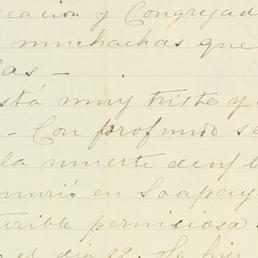 cación y Congregad
muchachas que
as —
stá muy triste y
— Con profundo se
la muerte de
murió en
terrible perniciosa
el dia 22. Se hi